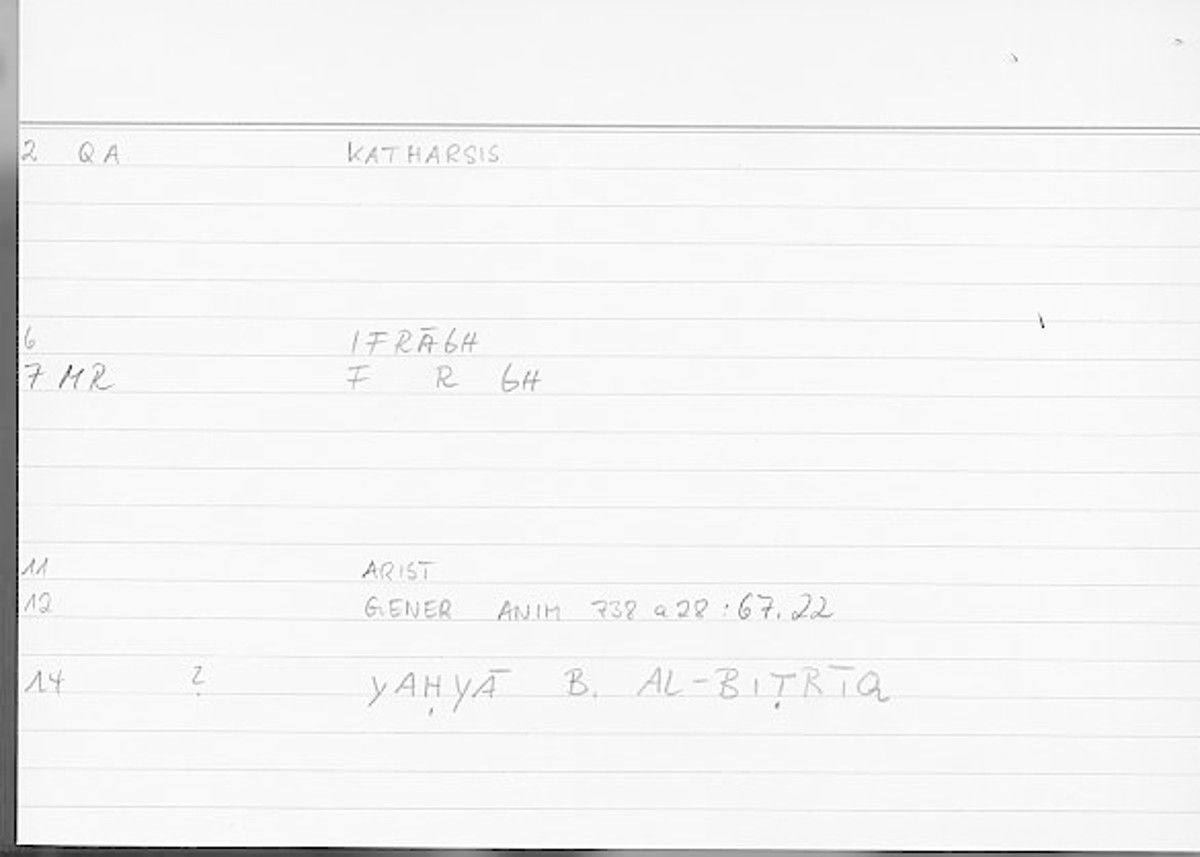 2 QA KATHARSIS
6 IFRĀGH
7 MR F R GH
11 ARIST
12 GENER ANIM 738 a 28 : 67.22
14 ? YAḤYĀ B. AL-BIṬRĪQ